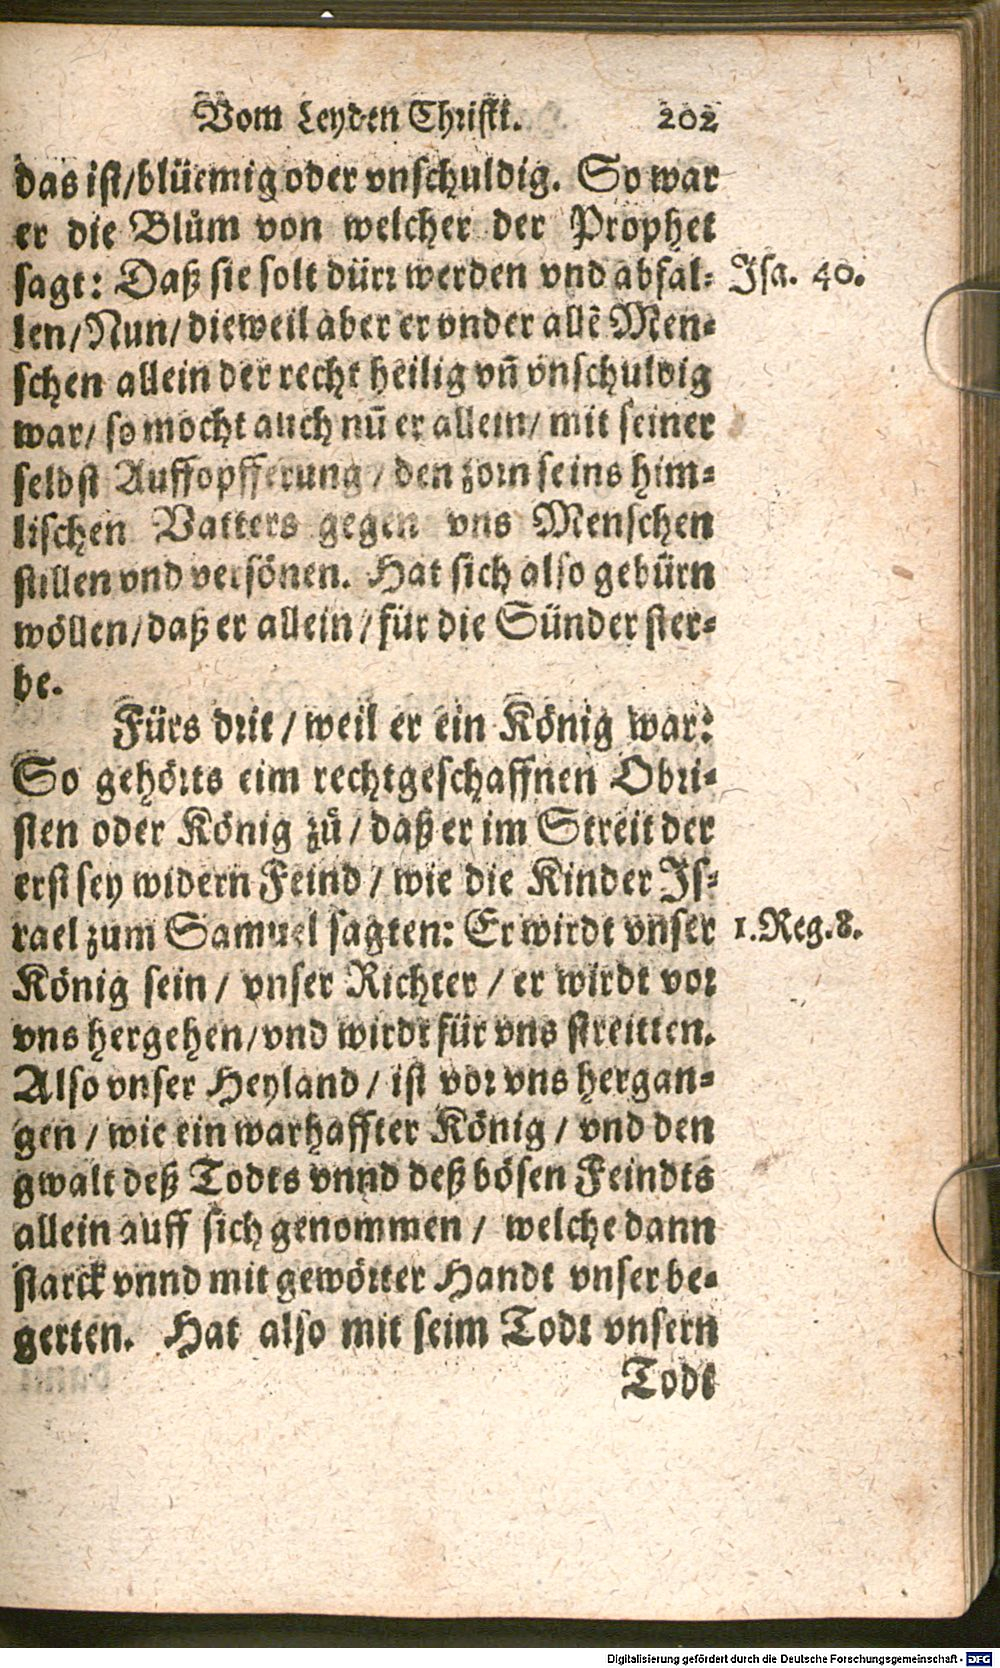 Vom Leyden Christi. 202
das ist/blüemig oder vnschuldig. So war
er die Blům von welcher der Prophet
sagt: Daß sie solt dürr werden vnd abfal-
Isa. 40.
len/Nun/dieweil aber er vnder allẽ Men-
schen allein der recht heilig vñ vnschuldig
war/ so mocht auch nũ er allein/ mit seiner
selbst Auffopfferung / den zorn seins him-
lischen Vatters gegen vns Menschen
stillen vnd versönen. Hat sich also gebürn
wöllen/daß er allein/für die Sünder ster-
be.
Fürs drit / weil er ein König war:
So gehörts eim rechtgeschaffnen Obri-
sten oder König zů / daß er im Streit der
erst sey widern Feind / wie die Kinder Is-
rael zum Samuel sagten: Er wirdt vnser
1. Reg. 8.
König sein / vnser Richter / er wirdt vor
vns hergehen/vnd wirdt für vns streitten.
Also vnser Heyland / ist vor vns hergan-
gen / wie ein warhaffter König / vnd den
gwalt deß Todts vnnd deß bösen Feindts
allein auff sich genommen / welche dann
starck vnnd mit gewörter Handt vnser be-
gerten. Hat also mit seim Todt vnsern
Todt
Digitalisierung gefördert durch die Deutsche Forschungsgemeinschaft - DFG